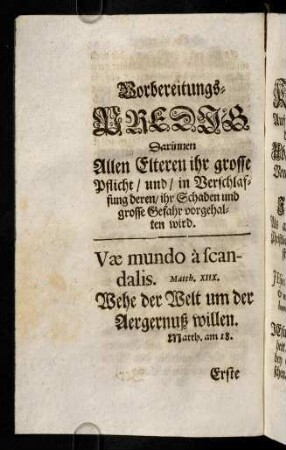 Vorbereitungs-
PREDIG
Darinnen
Allen Elteren ihr grosse
Pflicht / und / in Verschlaf-
fung deren / ihr Schaden und
grosse Gefahr vorgehal-
ten wird.
Væ mundo à scan-
dalis. Matth. XIIX.
Wehe der Welt um der
Aergernuß willen.
Matth. am 18.
Erste